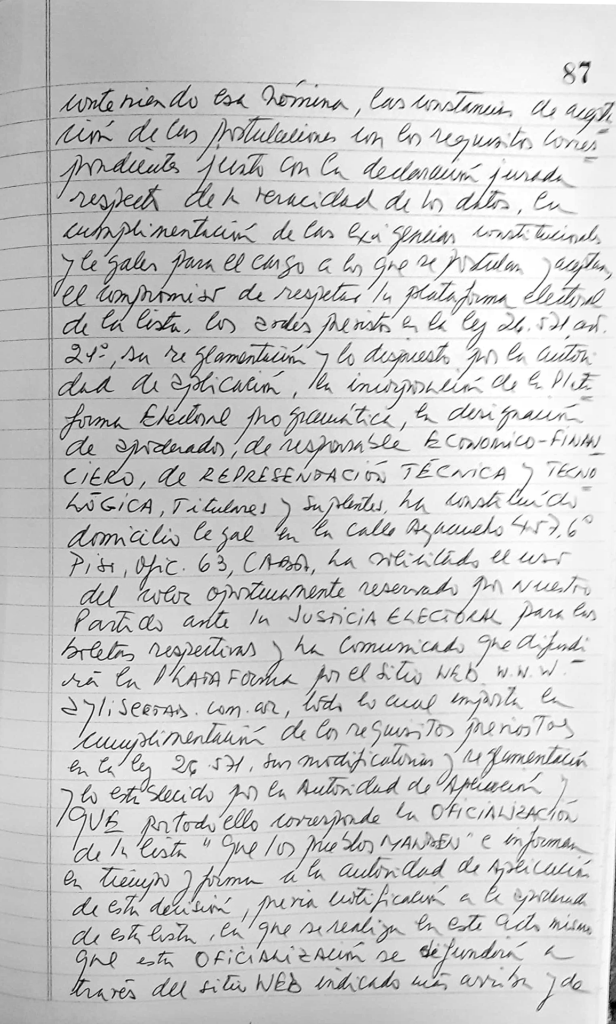 87
conteniendo esa nómina, las constancias de acepta
ción de las postulaciones con los requisitos corres
pondientes junto con la declaración jurada
respecto de la veracidad de los datos, la
cumplimentación de las exigencias constitucionales
y legales para el cargo a los que se postulan y aceptan
el compromiso de respetar la plataforma electoral
de la lista, los avales previstos en la ley 26.571, art.
21º, su reglamentación y lo dispuesto por la autori
dad de aplicación, la incorporación de la Plata
forma Electoral programática, la designación
de apoderados, de responsable ECONOMICO-FINAN
CIERO, de REPRESENTACIÓN TÉCNICA y TECNO
LÓGICA, Titulares y Suplentes, ha constituido
domicilio legal en la calle Ayacucho 457, 6º
Piso, Ofic. 63, CABA, ha solicitado el uso
del color oportunamente reservado por nuestro
Partido ante la JUSTICIA ELECTORAL para las
boletas respectivas y ha comunicado que difundi
rá la PLATAFORMA por el sitio WEB W.W.W.
todo lo cual importa la
cumplimentación de los requisitos previstos
en la ley 26.571, sus modificatorias y reglamentación
y lo establecido por la Autoridad de Aplicación y
QUE por todo ello corresponde la OFICIALIZACIÓN
de la lista "Que los pueblos MANDEN" e informar
en tiempo y forma a la autoridad de Aplicación
de esta decisión, previa notificación a la apoderada
de esta lista, la que se realiza en este acto mismo
que esta OFICIALIZACIÓN se difundirá a
través del sitio WEB indicado más arriba y de